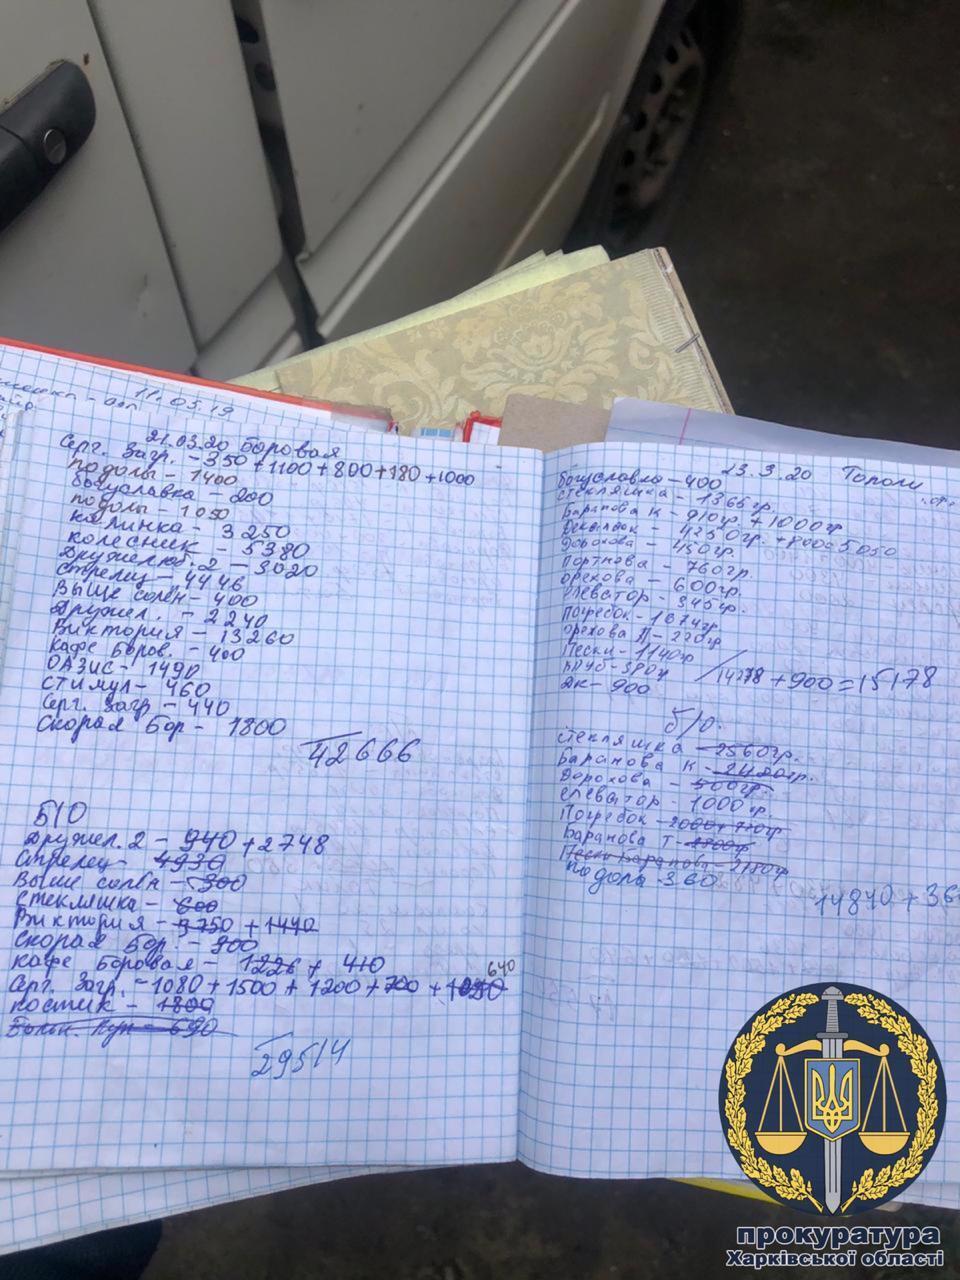 11.05.19
21.03.20 Боровая
Серг. Загр. - 350 + 1100 + 800 + 180 + 1000
подолы - 1400
богуславка - 200
подолы - 1050
калинка - 3250
колесник - 5380
Дружелюб. 2 - 3020
Стрелец - 4446
Выше солён - 400
Дружел. - 2240
Виктория - 13260
Кафе Боров. - 400
ОАЗИС - 1490
Стимул - 460
Серг. Загр - 440
Скорая Бор - 1800
42666
Б/О
Дружел. 2 - 940 + 2748
Стрелец - 4930
Выше солён - 300
Стекляшка - 600
Виктория - 9750 + 1440
Скорая Бор. - 900
Кафе Боровая - 1226 + 410
640
Серг. Загр. - 1080 + 1500 + 1200 + 700 +
костик - 1800
690
29514
23.3.20 Тополи
богуславка - 400
стекляшка - 1366гр.
Баранова К - 910гр. + 1000гр
4250гр. + 800 = 5050
Дорохова - 450гр.
Портнова - 760гр.
Орехова - 600гр.
Элеватор - 345гр.
Погребок - 1074гр
Орехова П - 220гр
Пески - 1140гр
ДК - 900
14278 + 900 = 15178
б/о.
стекляшка - 2560гр.
Баранова К - 2420гр.
Дорохова - 500гр
Элеватор - 1000гр.
Погребок - 2000 + 770гр
Баранова Т -
Пески Баранова - 2180гр
подола - 360
14840 + 36
прокуратура
Харківської області